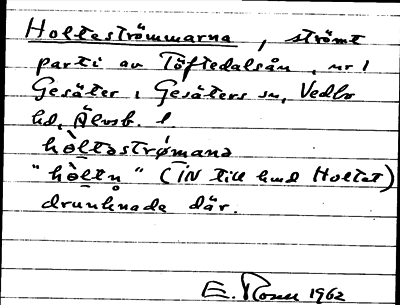 Holteströmmarna, strömt
parti av Töftedalsån, nr 1
Gesäter i Gesäters sn, Vedbo
hd, Älvsb. l
hòltəstrømanə
"hòltn" (IN till hmd Holtet)
drunknade där.
E. Rosen 1962